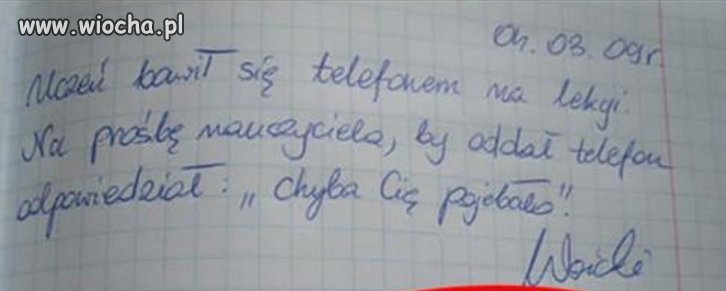 www.wiocha.pl
04.03.09r.
Uczeń bawił się telefonem na lekcji.
Na prośbę nauczyciela, by oddał telefon
odpowiedział: „chyba Cię pojebało".